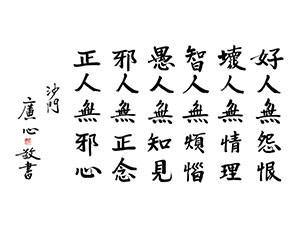 好人無怨恨
壞人無情理
智人無煩惱
愚人無知見
邪人無正念
正人無邪心
沙門
廣心敬書